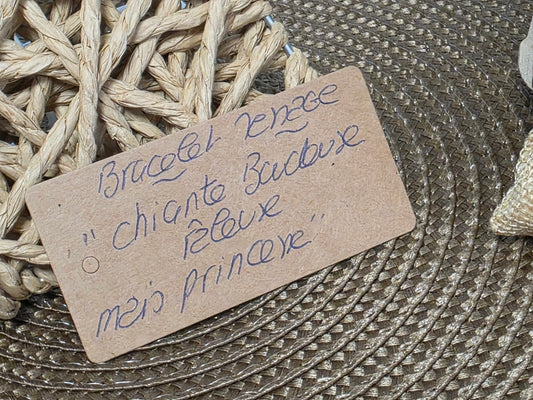 Bracelet message
"chiante Boudeuse
râleuse
mais princesse"